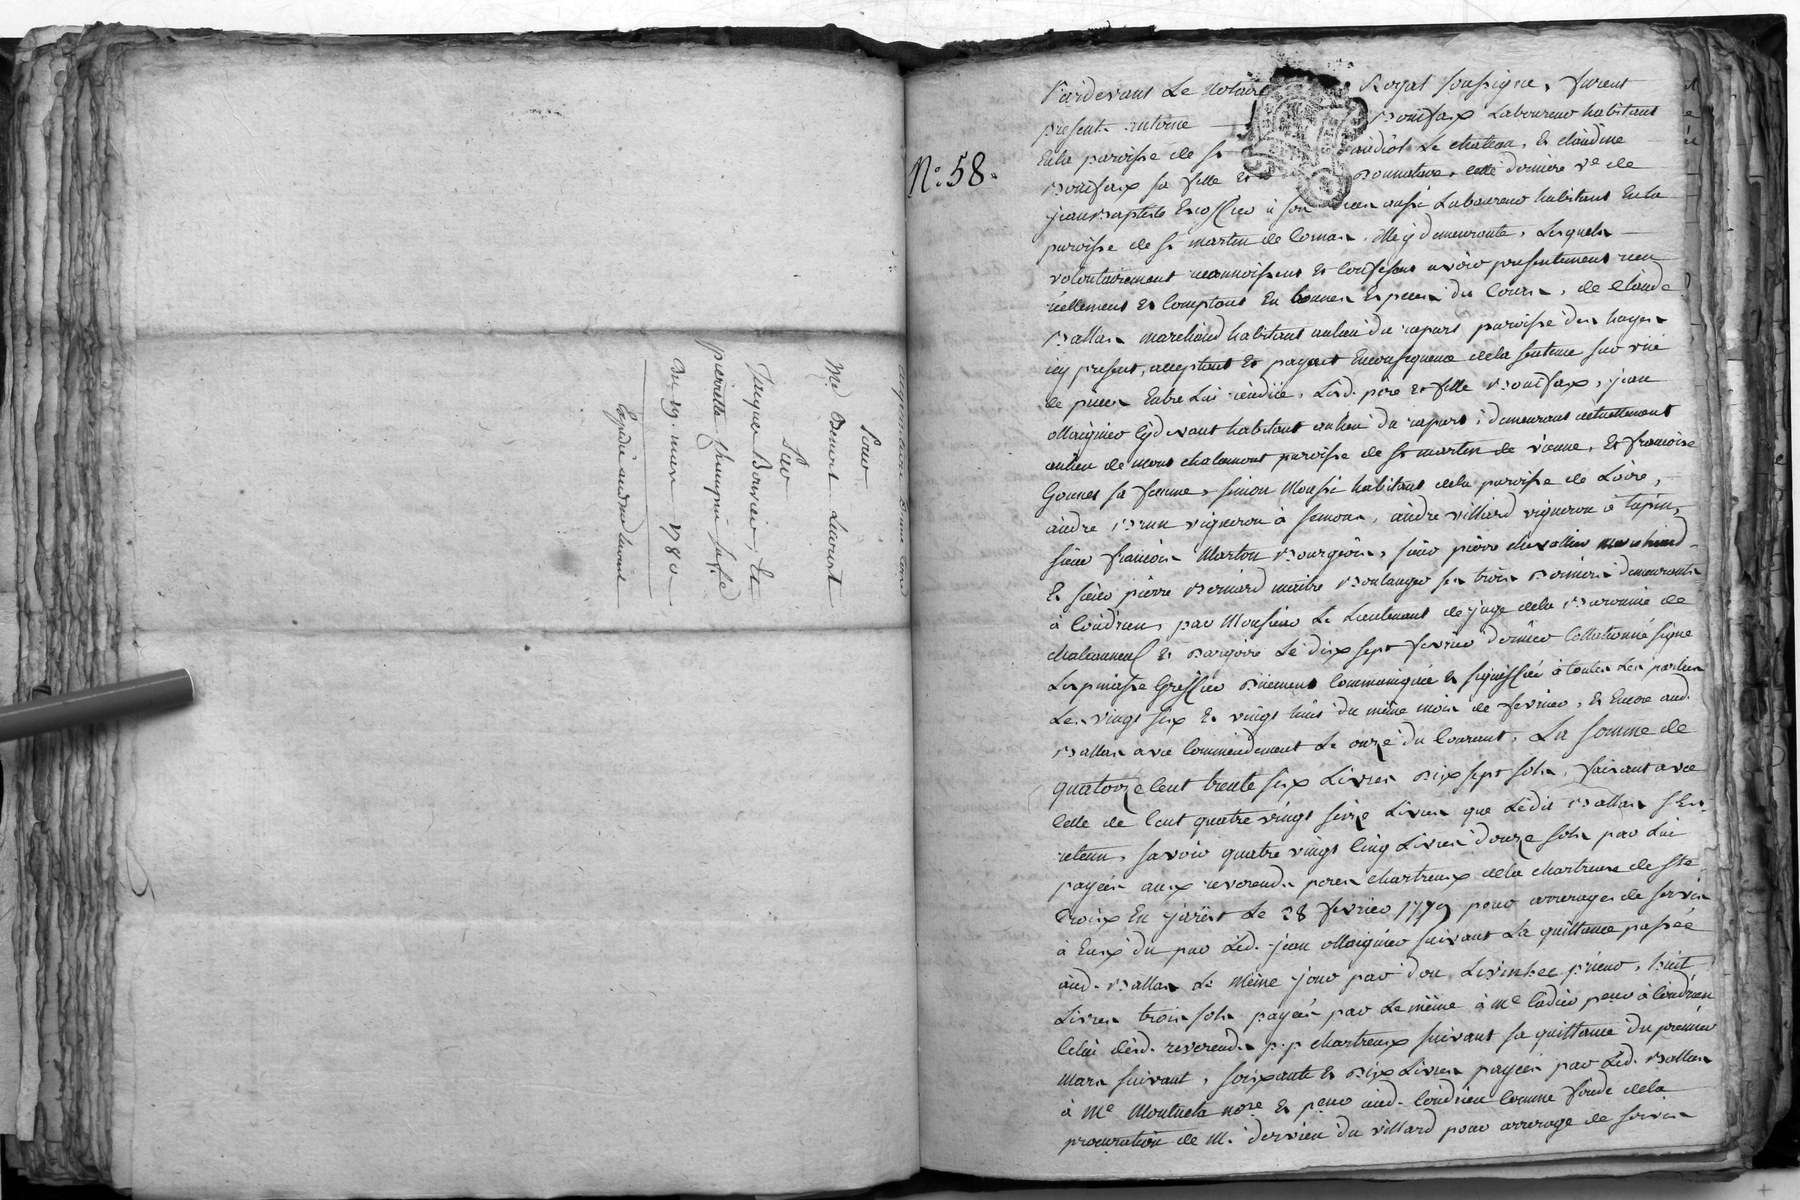 acquisition d'une terre
Pour
Me Benoit Laurent
Sur
Jacques Bouvier, Et
pierrette champin sa fe
Du 19. mars 1780
Expédié aud me laurent
No. 58.
Pardevant Le Notaire Royal soussigné, furent
present antoine Bonifax Laboureur habitant
En la paroisse de st andiol Le chateau, Et claudine
Bonifax sa fille Et Donnataire, cette derniere ve de
jean Baptiste Escoffier à son vivant aussi Laboureur habitant En la
paroisse de st martin de Cornas, Elle y demeurante, Lesquels
volontairement reconnoissent Et confessent avoir presentement reçu
réellement Et Comptant En bonnes Especes du Cours, de claude
Ballas marchand habitant au lieu du rapars paroisse des hayes
icy present, acceptant Et payant En consequence de la sentence sur vüe
de pieces Entre Lui rendüe, Lesd. père Et fille Bonifax, jean
Maignier cy devant habitant au lieu du rapars, demeurant actuellement
au lieu de mont chalamont paroisse de st martin de vienne, Et francoise
Gonnet sa femme, simon Moussi habitant de la paroisse de Loire,
andré Brun vigneron à semons, andré villard vigneron à tupin,
sieur francois Marton Bourgeois, sieur pierre chevallier marchand
Et sieur pierre Bernard maitre Boulanger ses trois Derniers demeurants
à Condrieu, par Monsieur Le Lieutenant de juge de la Baronnie de
chateauneuf Et Dargoire Le dix sept fevrier dernier Collationné signé
Lespinasse Greffier Düement Communiquée Et signiffiée à toutes Les parties
Les vingt six Et vingt huit du même mois de fevrier, Et Encore aud.
Ballas avec Commendement Le onze du Courant, La somme de
quatorze Cent trente six Livres Dix sept sols, faisant avec
Celle de Cent quatre vingt seize Livres que Ledit Ballas s'Est
retenu, savoir quatre vingt Cinq Livres douze sols par Lui
payées aux reverends peres chartreux de la chartreuse de ste
Croix En jarêst Le 28 fevrier 1779 pour arrerages de servis
à Eux du par Led. jean Maignier suivant La quittance passée
aud. Ballas Le même jour par don prieur, huit
Livres trois sols payées par Le même à Me Cadier pour à Condrieu
Celui desd. reverends p.p chartreux suivant sa quittance du premier
Mars suivant, soixante Et Dix Livres payées par Led. Ballas
à Me Montuela nore Et pour aud. Condrieu Comme fondé de la
procuration de M. dervieu du villard pour arrerage de servis